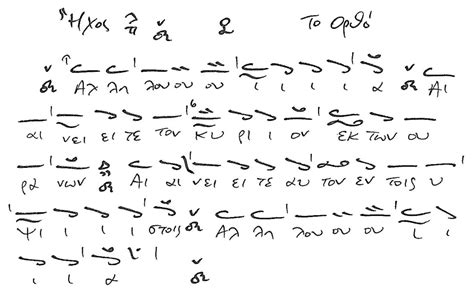 Ἦχος λ π δι Το Ορθό
δι Αλ λη λου ου ου ι ι ι ι α δι Αι
αι νει ει τε τον Κυ ρι ι ον εκ των ου
ρα νων δι Αι αι νει ει τε αυ τον εν τοις υ
ψι ι ι ι στοις δι Αλ λη λου ου ου ι ι
ι ι α δι